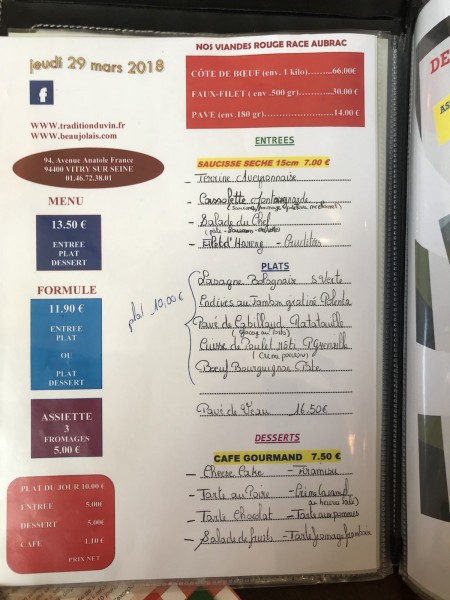 jeudi 29 mars 2018
f
WWW.traditionduvin.fr
WWW.beaujolais.com
94, Avenue Anatole France
94400 VITRY SUR SEINE
01.46.72.38.01
MENU
13.50 €
ENTREE
PLAT
DESSERT
FORMULE
11.90 €
ENTREE
PLAT
OU
PLAT
DESSERT
ASSIETTE
3
FROMAGES
5.00 €
PLAT DU JOUR 10.00 €
ENTREE 5.00€
DESSERT 5.00€
CAFE 1.10 €
PRIX NET
NOS VIANDES ROUGE RACE AUBRAC
CÔTE DE BŒUF (env. 1 kilo)………66.00€
FAUX-FILET ( env .500 gr)………30,00 €
PAVE (env.180 gr)……………14.00 €
ENTREES
SAUCISSE SECHE 15cm 7.00 €
- Terrine Aveyronnaise
- Cassolette
- Salade du Chef
- Filet d'Hareng - Crudités
PLATS
plat 10,00€
Lasagne Bolognaise S Verte
Endives au Jambon gratiné Polenta
Pavé de Cabillaud Ratatouille
Cuisse de Poulet rôti P. Grenaille
Bœuf Bourguignon Pâte
Pavé de Veau 16,50€
DESSERTS
CAFE GOURMAND 7.50 €
- Cheese Cake - Tiramisu
- Tarte au Poire - Crème Caramel
- Tarte Chocolat - Tarte aux pommes
- Salade de fruits - Tarte fromage framboise
DE
AS